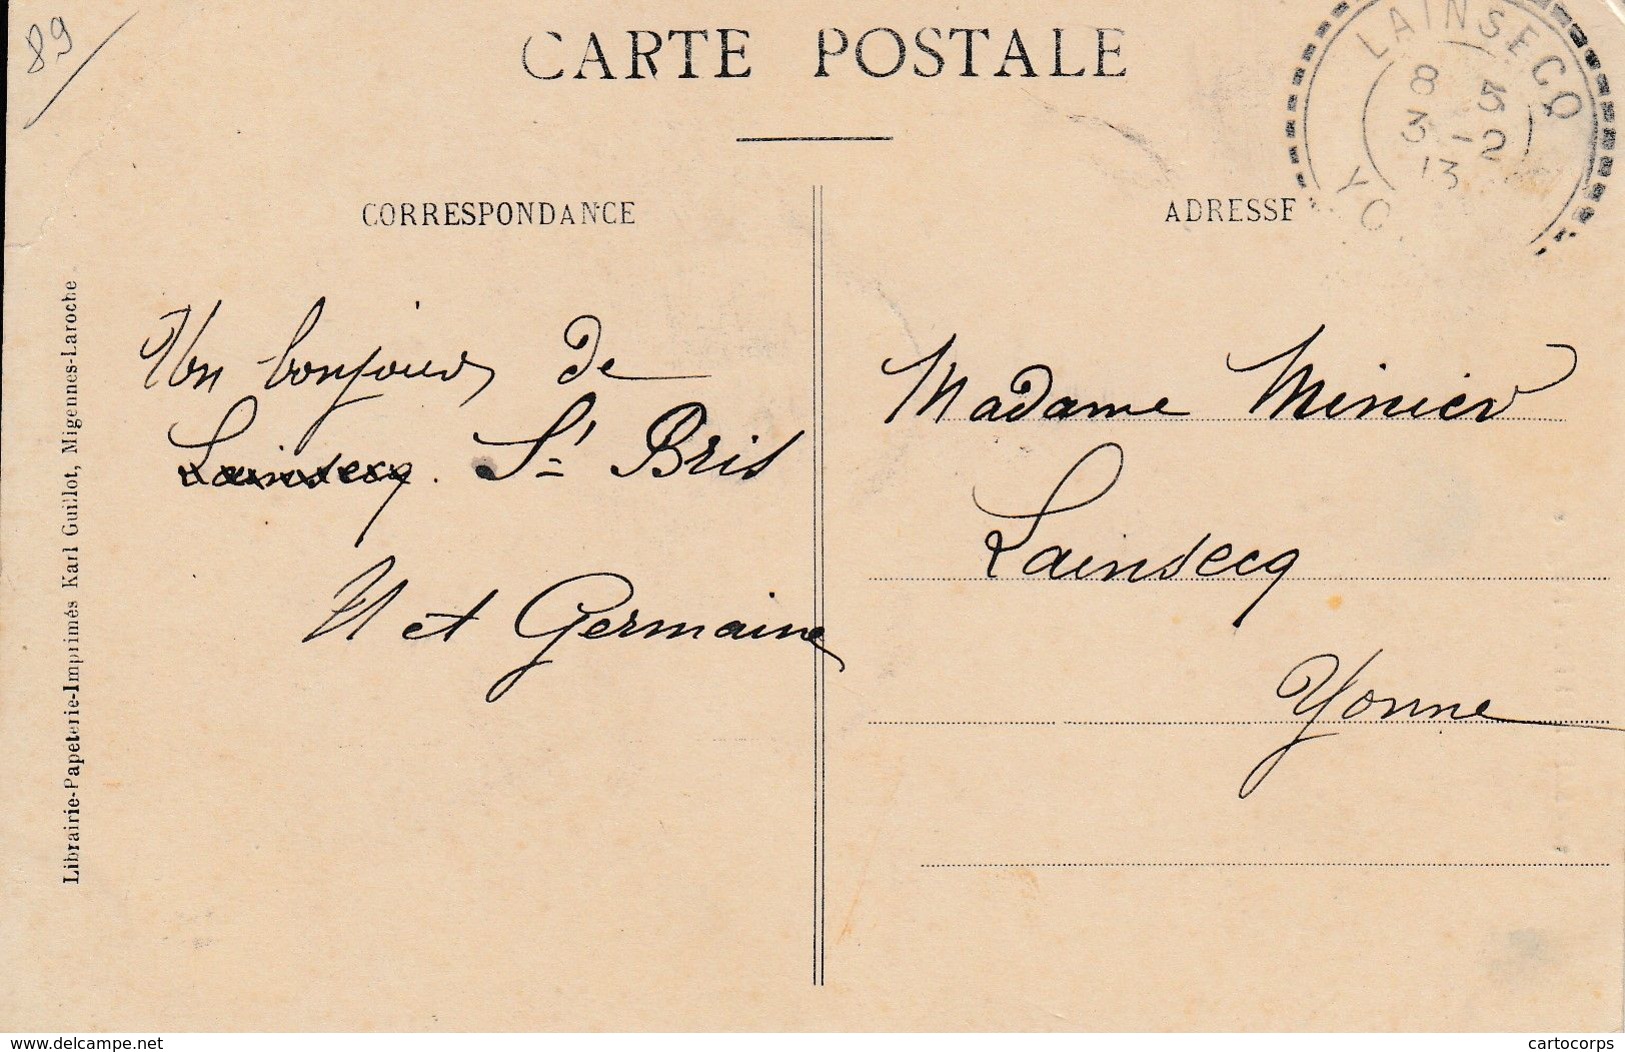 89
CARTE POSTALE
LAINSECQ
8 5
3 -2
13
YO
CORRESPONDANCE
ADRESSE
Un bonjour de
Lainsecq. St Bris
et Germaine
Madame Minier
Lainsecq
Yonne
Librairie-Papeterie-Imprimés Karl Guillot, Migennes-Laroche
www.delcampe.net
cartocorps